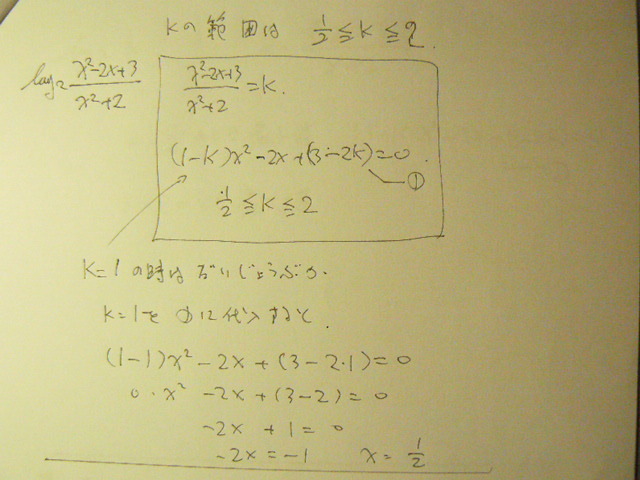 Kの範囲は 1/2 ≦ K ≦ 2
log₂ (x²-2x+3)/(x²+2)
(x²-2x+3)/(x²+2) = K.
(1-K)x²-2x+(3-2K)=0. ①
1/2 ≦ K ≦ 2
K=1の時はだいじょうぶか.
K=1を①に代入すると.
(1-1)x²-2x+(3-2·1)=0
0·x²-2x+(3-2)=0
-2x+1=0
-2x=-1 x=1/2